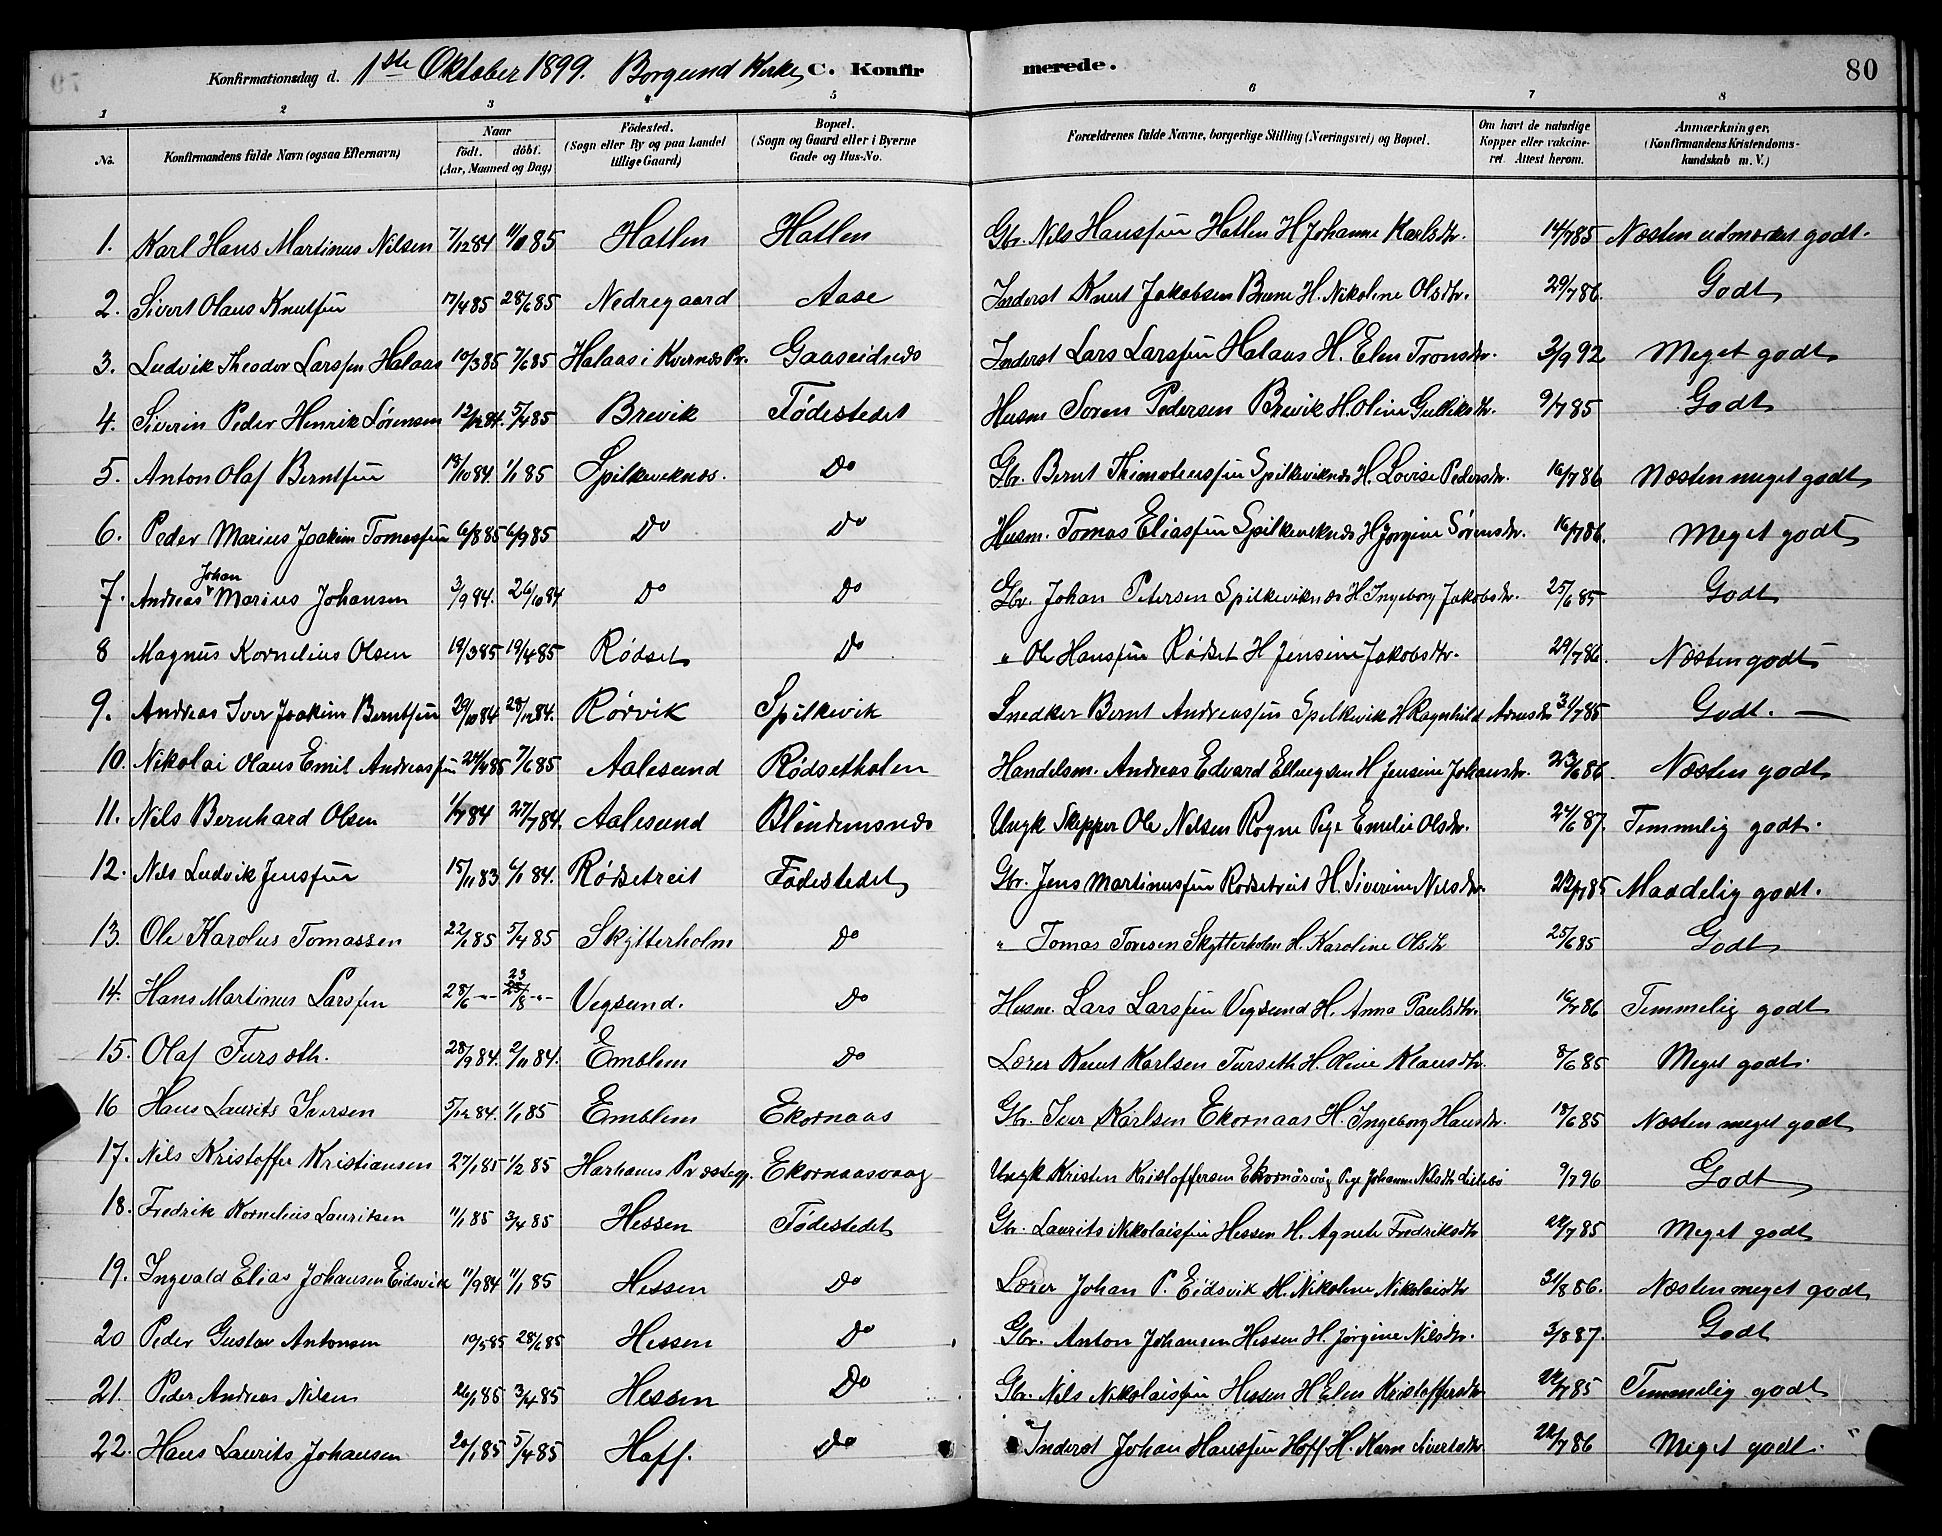 Konfirmationsdag d. 1ste Oktober 1899. Borgund Kirke, C. Konfir merede. 80
1 2 3 4 5 6 7 8
No. Konfirmandens fulde Navn (ogsaa Efternavn) Naar födt. döbt. (Aar, Maaned og Dag) Födested. (Sogn eller By og paa Landet tillige Gaard) Bopæl. (Sogn og Gaard eller i Byerne Gade og Hus-No. Forældrenes fulde Navne, borgerlige Stilling (Næringsvei) og Bopæl. Om havt de naturlige Kopper eller vakcineret. Attest herom. Anmærkninger. (Konfirmandens Kristendomskundskab m. V.)
1. Karl Hans Martinus Nilsen 7/12 84 11/1 85 Hatlen Hatlen Gbr. Nils Hanssen Hatlen H Johanne Karlsdtr. 14/7 85 Næsten udmærket godt.
2. Sivert Olaus Knutsen 17/4 85 28/6 85 Nedregaard Aase Inderst Knut Jakobsen Brune H. Nikoline Olsdtr. 29/7 86. Godt
3. Ludvik Theodor Larssen Halaas 10/3 85 7/6 85 Halaas i Kvernæs Pr. Gaaseidnæs Inderst Lars Larssen Halaas H. Elen Tronsdtr. 3/9 92 Meget godt
4. Siverin Peder Henrik Sørensen 12/12 84. 5/4 85 Brevik Födestedet Husm Soren Pedersen Brevik H. Oline Gulliksdtr. 9/7 85 Godt
5. Anton Olaf Berntsen 18/10 84. 1/1 85 Spilkeviknæs. Do Gbr. Bernt Thimoteussen Spilkeviknæs H. Lovise Pedersdtr. 16/7 86 Næsten meget godt
6. Peder Marius Joakim Tomassen 6/8 85 6/9 85 Do Do Husm. Tomas Eliassen Spilkeviknæs H Jørgine Sørensdtr. 16/7 86. Meget godt
7. Andreas Johan Marius Johansen 3/9 84. 26/10 84 Do Do Gbr. Johan Petersen Spilkeviknæs H Ingeborg Jakobsdtr. 25/6 85 Godt
8 Magnus Kornelius Olsen 19/3 85 19/4 85 Rødset Do " Ole Hanssen Rødset H Jensine Jakobsdtr. 29/7 86. Næsten godt
9. Andreas Iver Joakim Berntsen 29/10 84 28/12 84. Rørvik Spilkevik Snedker Bernt Andreassen Spilkevik H Ragnhild Arnesdtr 31/7 85 Godt. —
10. Nikolai Olaus Emil Andreassen 24/4 85 7/6 85 Aalesund Rødsetholen Handelsm. Andreas Edvard Ellingsen H Jensine Johansdtr. 23/6 86. Næsten godt
11. Nils Bernhard Olsen 1/7 84 27/7 84. Aalesund Blindemsnæs Ungk Skipper Ole Nilsen Rogne Pige Emelie Olsdtr. 24/6 87. Temmelig godt.
12. Nils Ludvik Jenssen 15/11 83 6/1 84. Rødsetreit Födestedet Gbr. Jens Martinussen Rødsetreit H. Siverine Nilsdtr. 22/7 85 Maadelig godt.
13. Ole Karolus Tomassen 22/1 85 5/4 85 Skytterholm Do " Tomas Toresen Skytterholm H. Karoline Olsdtr 25/6 85 Godt
14. Hans Martinus Larssen 28/6 -"- 23/8 -"- Vegsund. Do Husm. Lars Larssen Vegsund H. Anna Paulsdtr. 16/7 86 Temmelig godt
15. Olaf Tursøth. 28/9 84. 2/11 84. Emblem Do Lærer Knut Karlsen Turseth H. Oline Klausdtr. 8/6 85 Meget godt.
16 Hans Laurits Iversen 5/12 84. 1/1 85 Emblem Ekornaas Gbr. Iver Karlsen Ekornaas H. Ingeborg Hansdtr. 18/6 85 Næsten meget godt
17. Nils Kristoffer Kristiansen 27/1 85 1/2 85 Harhams Præstegj. Ekornaasvaag Ungk Kristen Kristoffersen Ekornåsvåg Pige Johanne Nilsdtr Lillebø 9/7 96 Godt
18. Fredrik Kornelius Lauritsen 11/1 85 3/4 85 Hessen Födestedet Gbr. Laurits Nikolaissen Hessen H. Agnete Fredriksdtr 22/7 85 Meget godt
19. Ingvald Elias Johansen Eidsvik 11/9 84 11/1 85 Hessen Do Lærer Johan P. Eidsvik H. Nikoline Nikolaisdtr 31/8 86. Næsten meget godt
20 Peder Gustav Antonsen 19/5 85 28/6 85 Hessen Do Gbr. Anton Johansen Hessen H. Jørgine Nilsdtr. 3/8 87. Godt
21. Peder Andreas Nilsen 26/1 85 3/4 85 Hessen Do Gbr. Nils Nikolaissen Hessen H Elen Kristoffersdtr 22/7 85 Temmelig godt
22. Hans Laurits Johansen 20/1 85 5/4 85 Hoff. Do Inderst Johan Hanssen Hoff H. Karn Sivertsdtr 22/7 86 Meget godt.